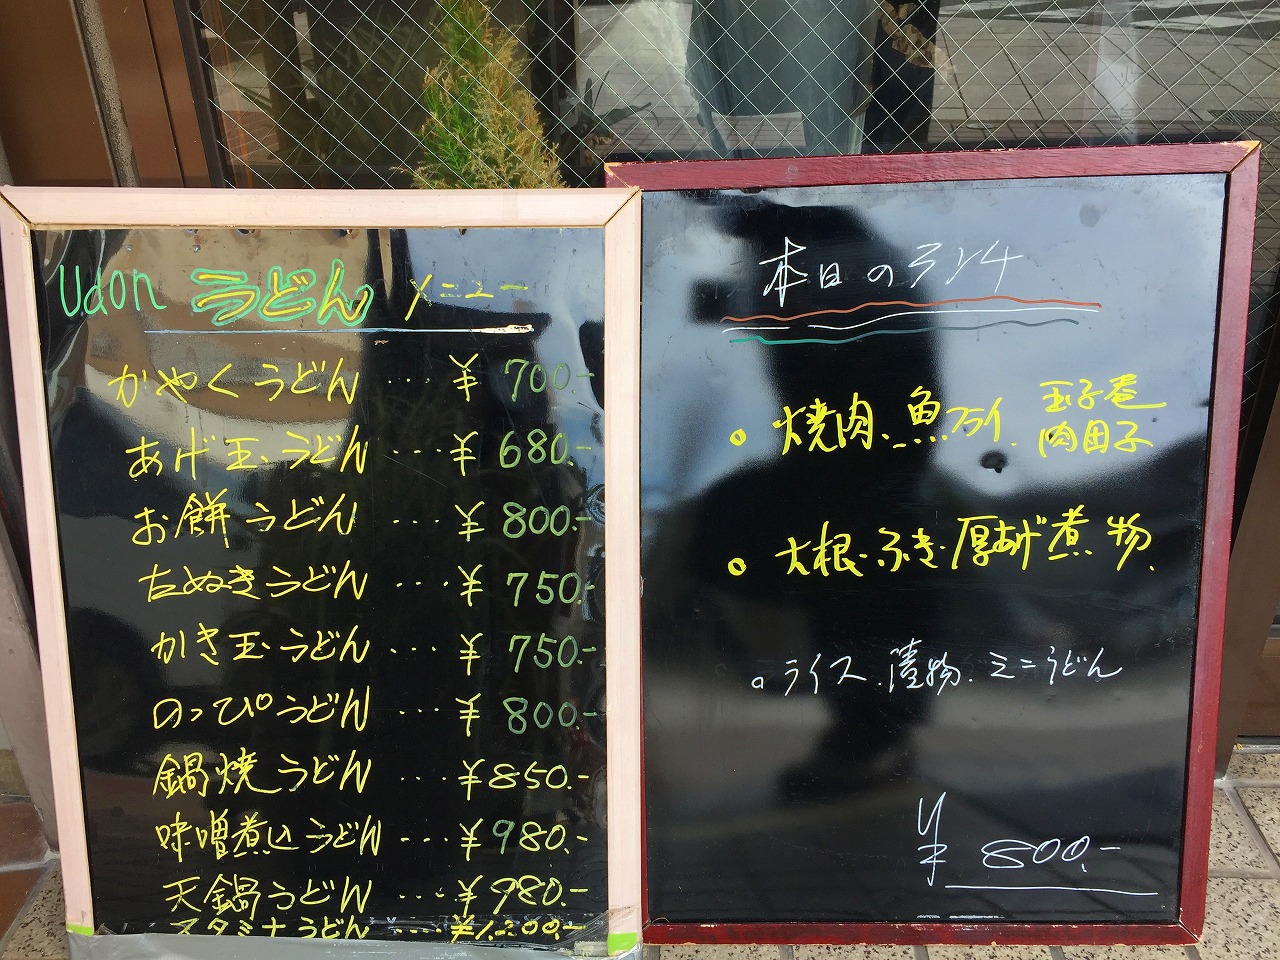 Udon うどん メニュー
かやくうどん ... ¥700.-
あげ玉うどん ... ¥680.-
お餅うどん ... ¥800.-
たぬきうどん ... ¥750.-
かき玉うどん ... ¥750.-
のっぴうどん ... ¥800.-
鍋焼うどん ... ¥850.-
味噌煮込うどん ... ¥980.-
天鍋うどん ... ¥980.-
スタミナうどん
本日のランチ
○ 焼肉、魚フライ、玉子巻
肉団子
○ 大根・ふき・厚あげ煮物、
○ ライス、漬物、ミニうどん
¥800.-